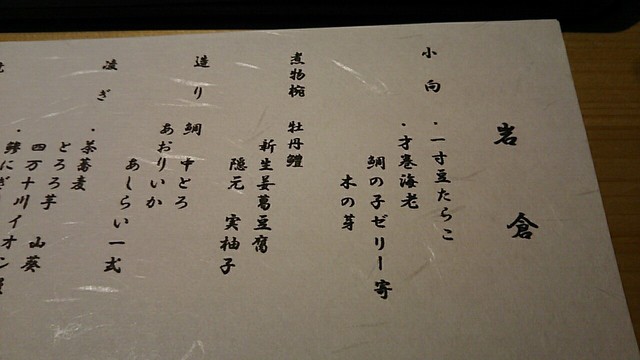 岩倉
小向
・一寸豆たらこ
・才巻海老
鯛の子ゼリー寄
木の芽
煮物椀 牡丹鱧
新生姜葛豆腐
隠元 実柚子
造り 鯛 中とろ
あおりいか
あしらい一式
凌ぎ ・茶蕎麦
とろろ芋
四万十川イオン
山葵
・鯵にぎ